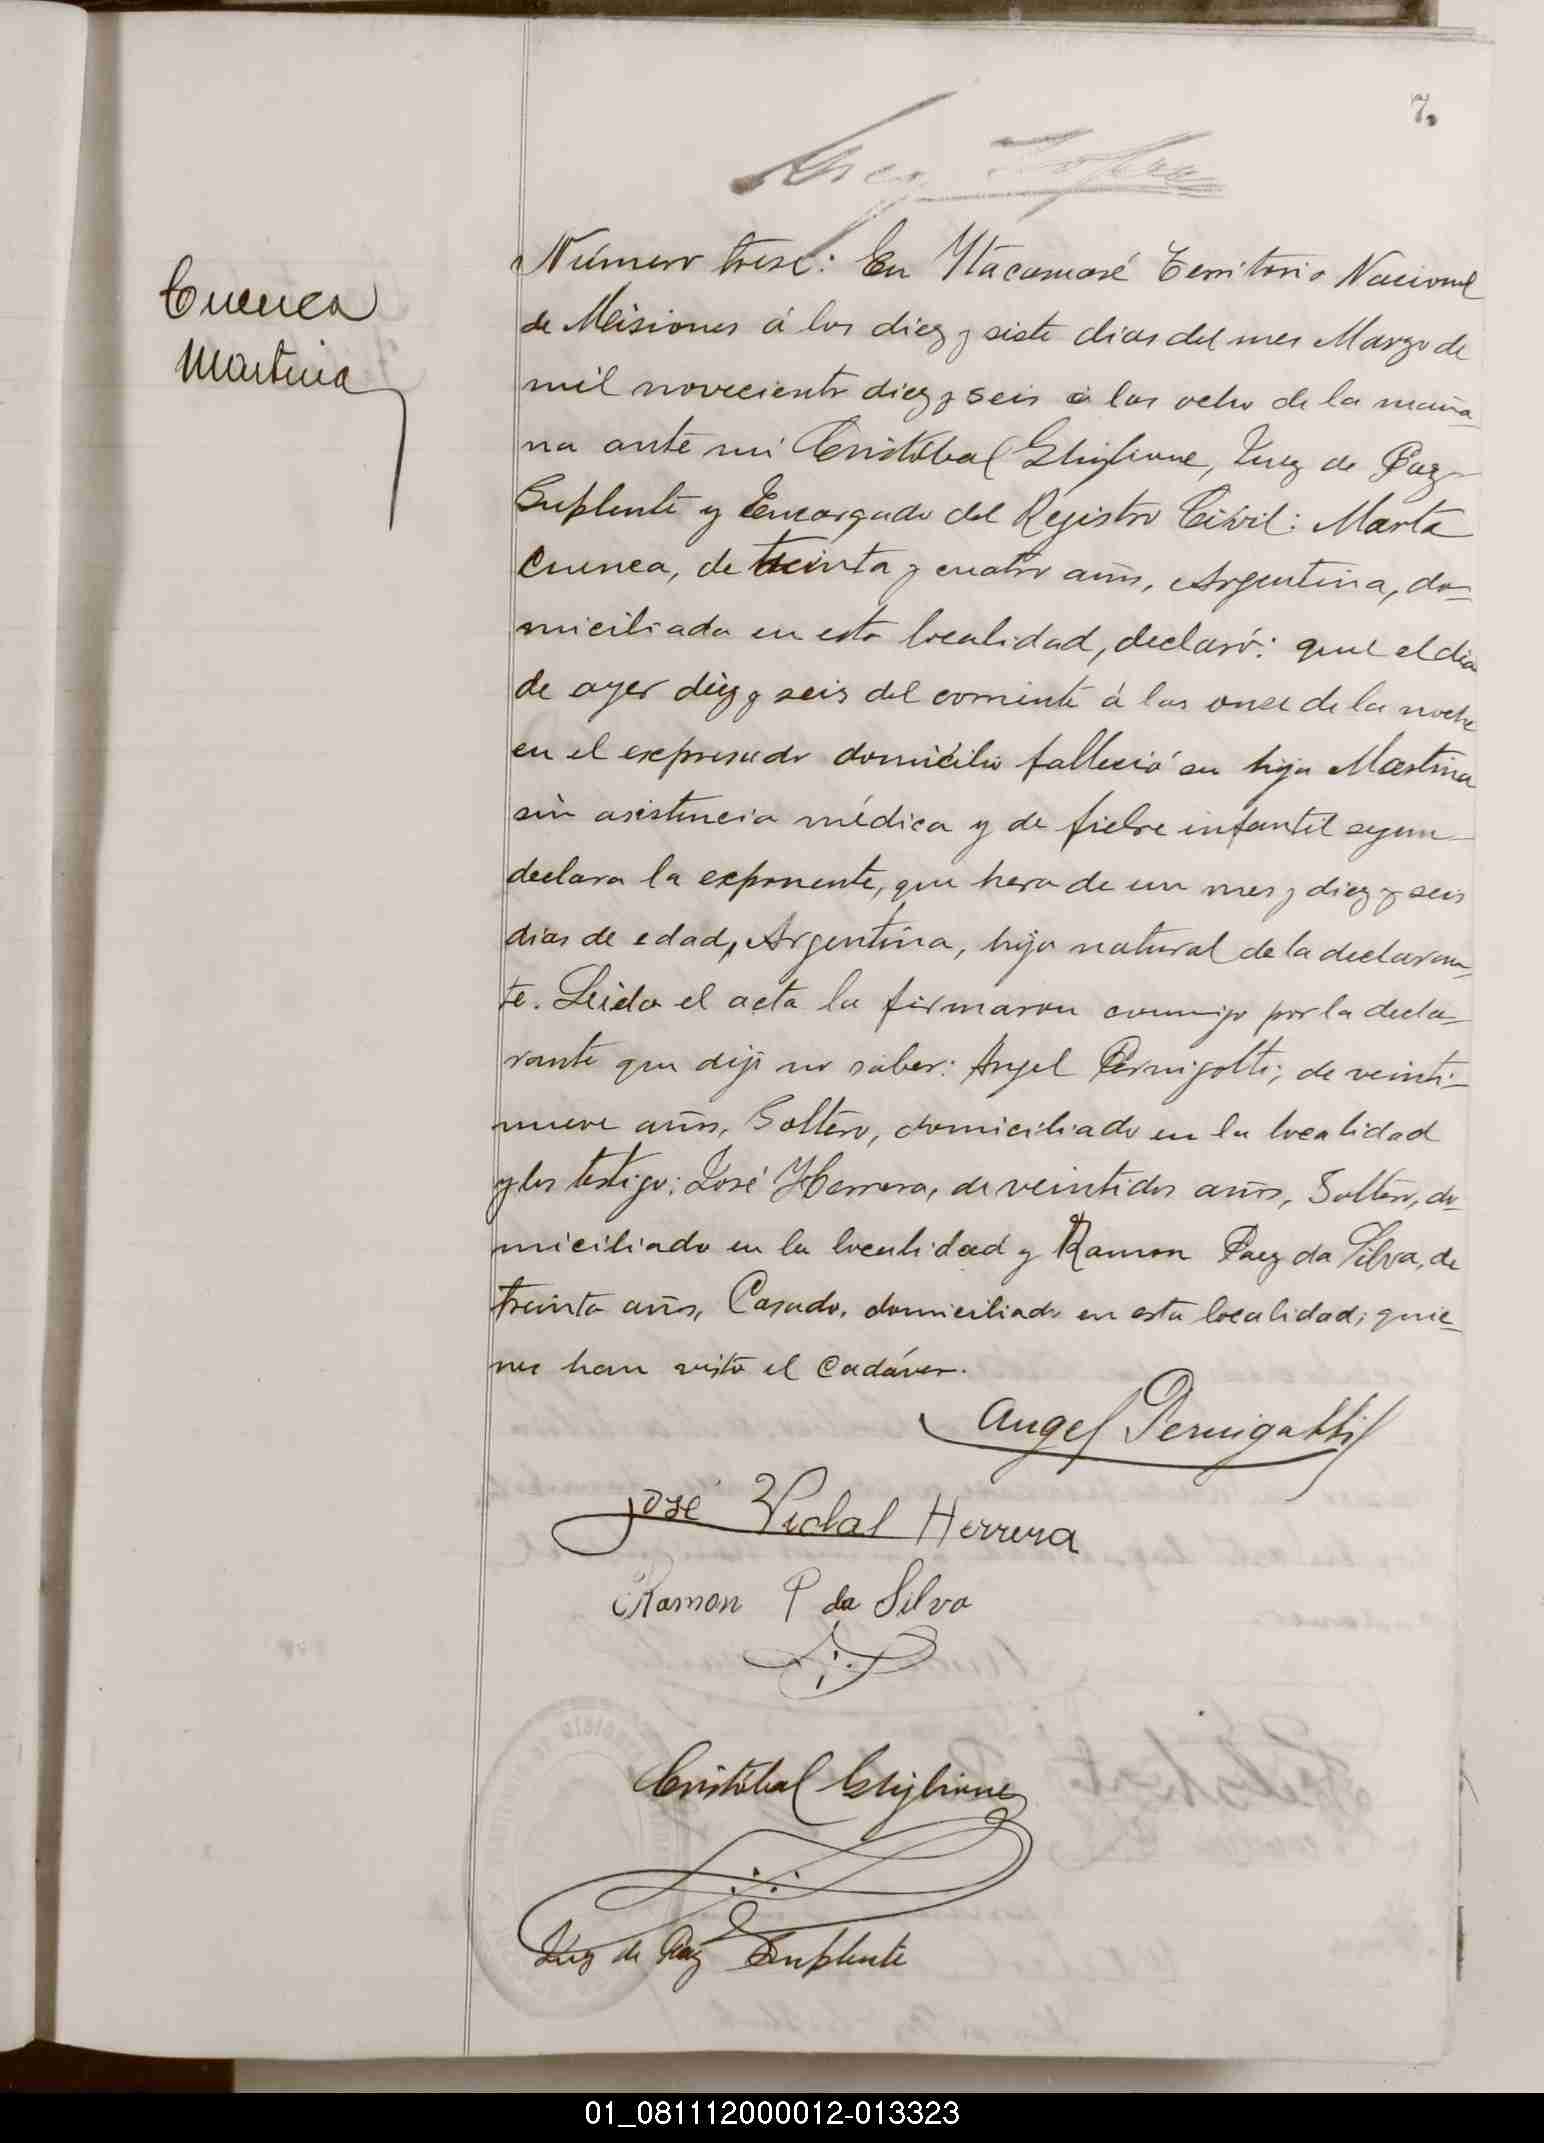 7.
Cuenca
Martina
Número trese: En Ytacaruaré Territorio Nacional
de Misiones á los diez y siete dias del mes Marzo de
mil novecientos diez y seis á las ocho de la maña
na ante mi Cristóbal Ghiglione, Juez de Paz
Suplente y Encargado del Registro Civil: Marta
Cuenca, de treinta y cuatro años, Argentina, do-
miciliada en esta localidad, declaró: que el dia
de ayer diez y seis del corriente á las onse de la noche
en el expresado domicilio falleció su hija Martina
sin asistencia médica y de fiebre infantil segun
declara la exponente, que hera de un mes y diez y seis
dias de edad, Argentina, hija natural de la declaran-
te. Leida el acta la firmaron conmigo por la decla-
rante que dijo no saber: Angel Pernigotti; de veinti-
nueve años, Soltero, domiciliado en la localidad
y los testigo: José Herrera, de veintidos años, Soltero, do-
miciliado en la localidad y Ramon Paez da Silva, de
treinta años, Casado, domiciliado en esta localidad; quie-
nes han visto el cadáver.
Angel Pernigotti
José Vidal Herrera
Ramon P da Silva
Cristóbal Ghiglione
Juez de Paz Suplente
01_081112000012-013323